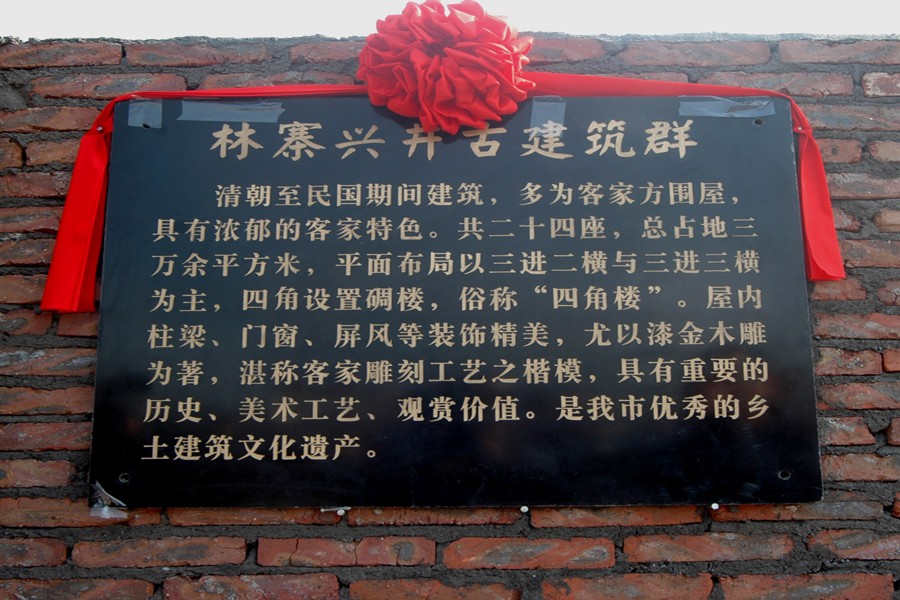 林寨兴井古建筑群
清朝至民国期间建筑，多为客家方围屋，
具有浓郁的客家特色。共二十四座，总占地三
万余平方米，平面布局以三进二横与三进三横
为主，四角设置碉楼，俗称“四角楼”。屋内
柱梁、门窗、屏风等装饰精美，尤以漆金木雕
为著，湛称客家雕刻工艺之楷模，具有重要的
历史、美术工艺、观赏价值。是我市优秀的乡
土建筑文化遗产。